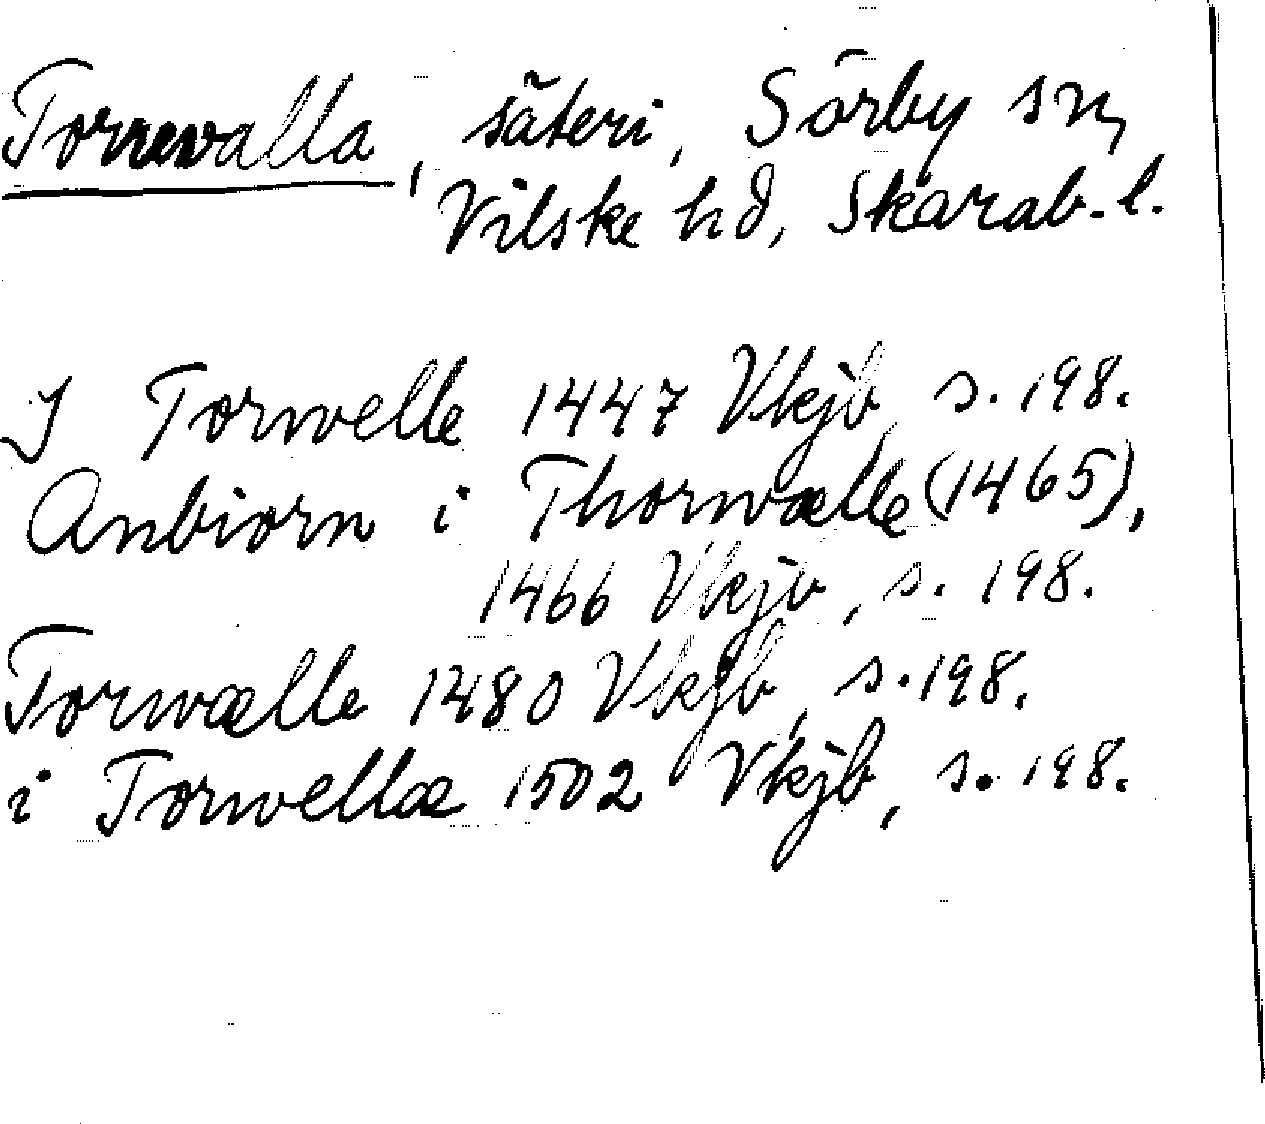 Torrevalla, säteri, Sörby sn,
Vilske hd, Skarab. l.
I Torwelle 1447 Vkjb, s. 198.
Anbiorn i Thorwælle (1465),
1466 Vkjb, s. 198.
Torwælle 1480 Vkjb, s. 198.
i Torwellæ 1502 Vkjb, s. 198.